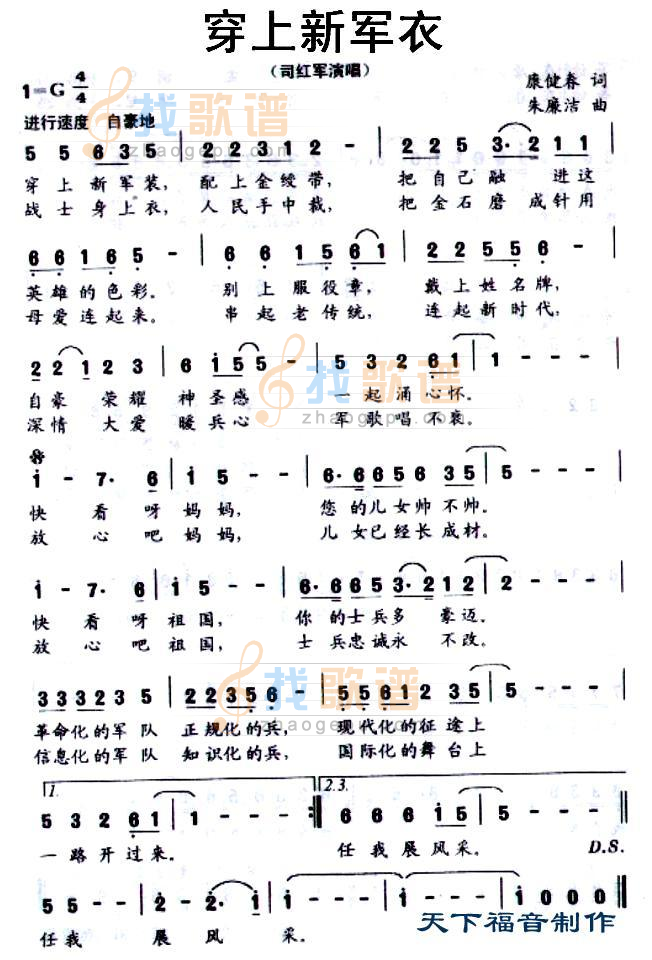 穿上新军衣
(司红军演唱)
1=G 4/4
康健春 词
朱廉洁 曲
进行速度 自豪地
5 5 6 3 5 | 2 2 3 1 2 - | 2 2 5 3· 2 1 1 |
穿上新军装，配上金绶带，把自己融进这
战士身上衣，人民手中裁，把金石磨成针用
6 6 1 6 5 - | 6 6 1 5 6 1 | 2 2 5 5 6 - |
英雄的色彩。别上服役章，戴上姓名牌，
母爱连起来。串起老传统，连起新时代，
2 2 1 2 3 | 6 i 5 5 - | 5 3 2 6 1 | 1 - - - |
自豪荣耀神圣感 一起涌心怀。
深情大爱暖兵心 军歌唱不衰。
i - 7· 6 | i 5 - - | 6· 6 6 5 6 3 5 | 5 - - - |
快看呀妈妈，您的儿女帅不帅。
放心吧妈妈，儿女已经长成材。
i - 7· 6 | i 5 - - | 6· 6 6 5 3· 2 1 2 | 2 - - - |
快看呀祖国，你的士兵多豪迈。
放心吧祖国，士兵忠诚永不改。
3 3 3 2 3 5 | 2 2 3 5 6 - | 5 5 6 1 2 3 5 |
革命化的军队 正规化的兵，现代化的征途上
信息化的军队 知识化的兵，国际化的舞台上
1. 2.3.
5 3 2 6 1 | 1 - - - :‖ 6 6 6 i 5 | 5 - - - ‖
一路开过来。任我展风采。 D.S.
5 5 - - | 2 - 2· i | i - - - | i 0 0 0 ‖
任我展风采。
天下福音制作
找歌谱
zhaogepu.com
找歌谱
zhaogepu.com
找歌谱
zhaogepu.com